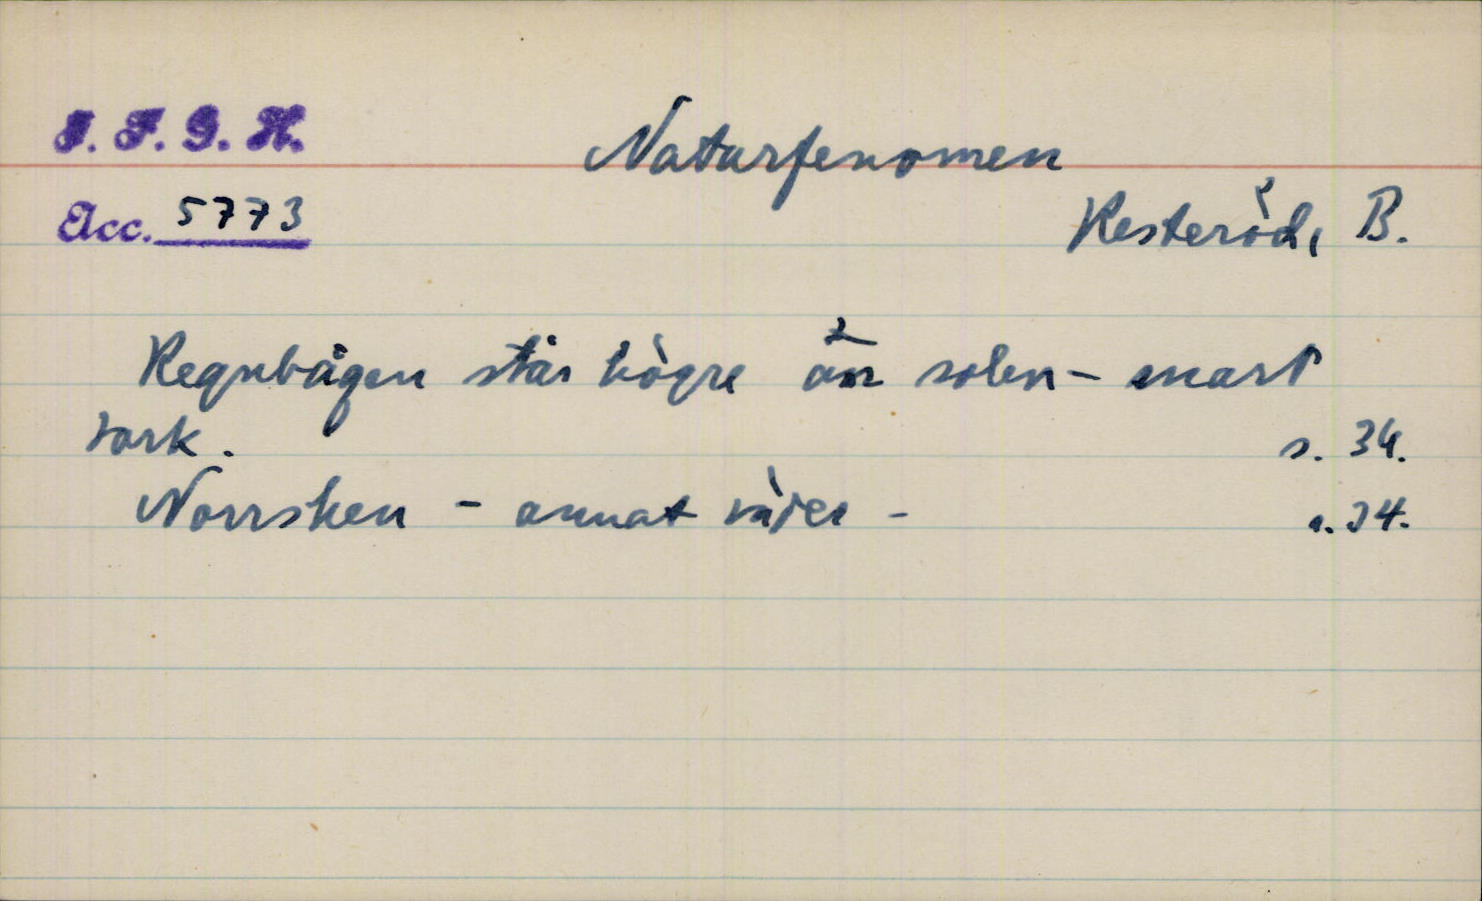 I. F. G. H.
Naturfenomen
Acc. 5773
Resteröd, B.
Regnbågen står högre än solen - snart
tork.
s. 34.
Norrsken - annat väder -
s. 34.